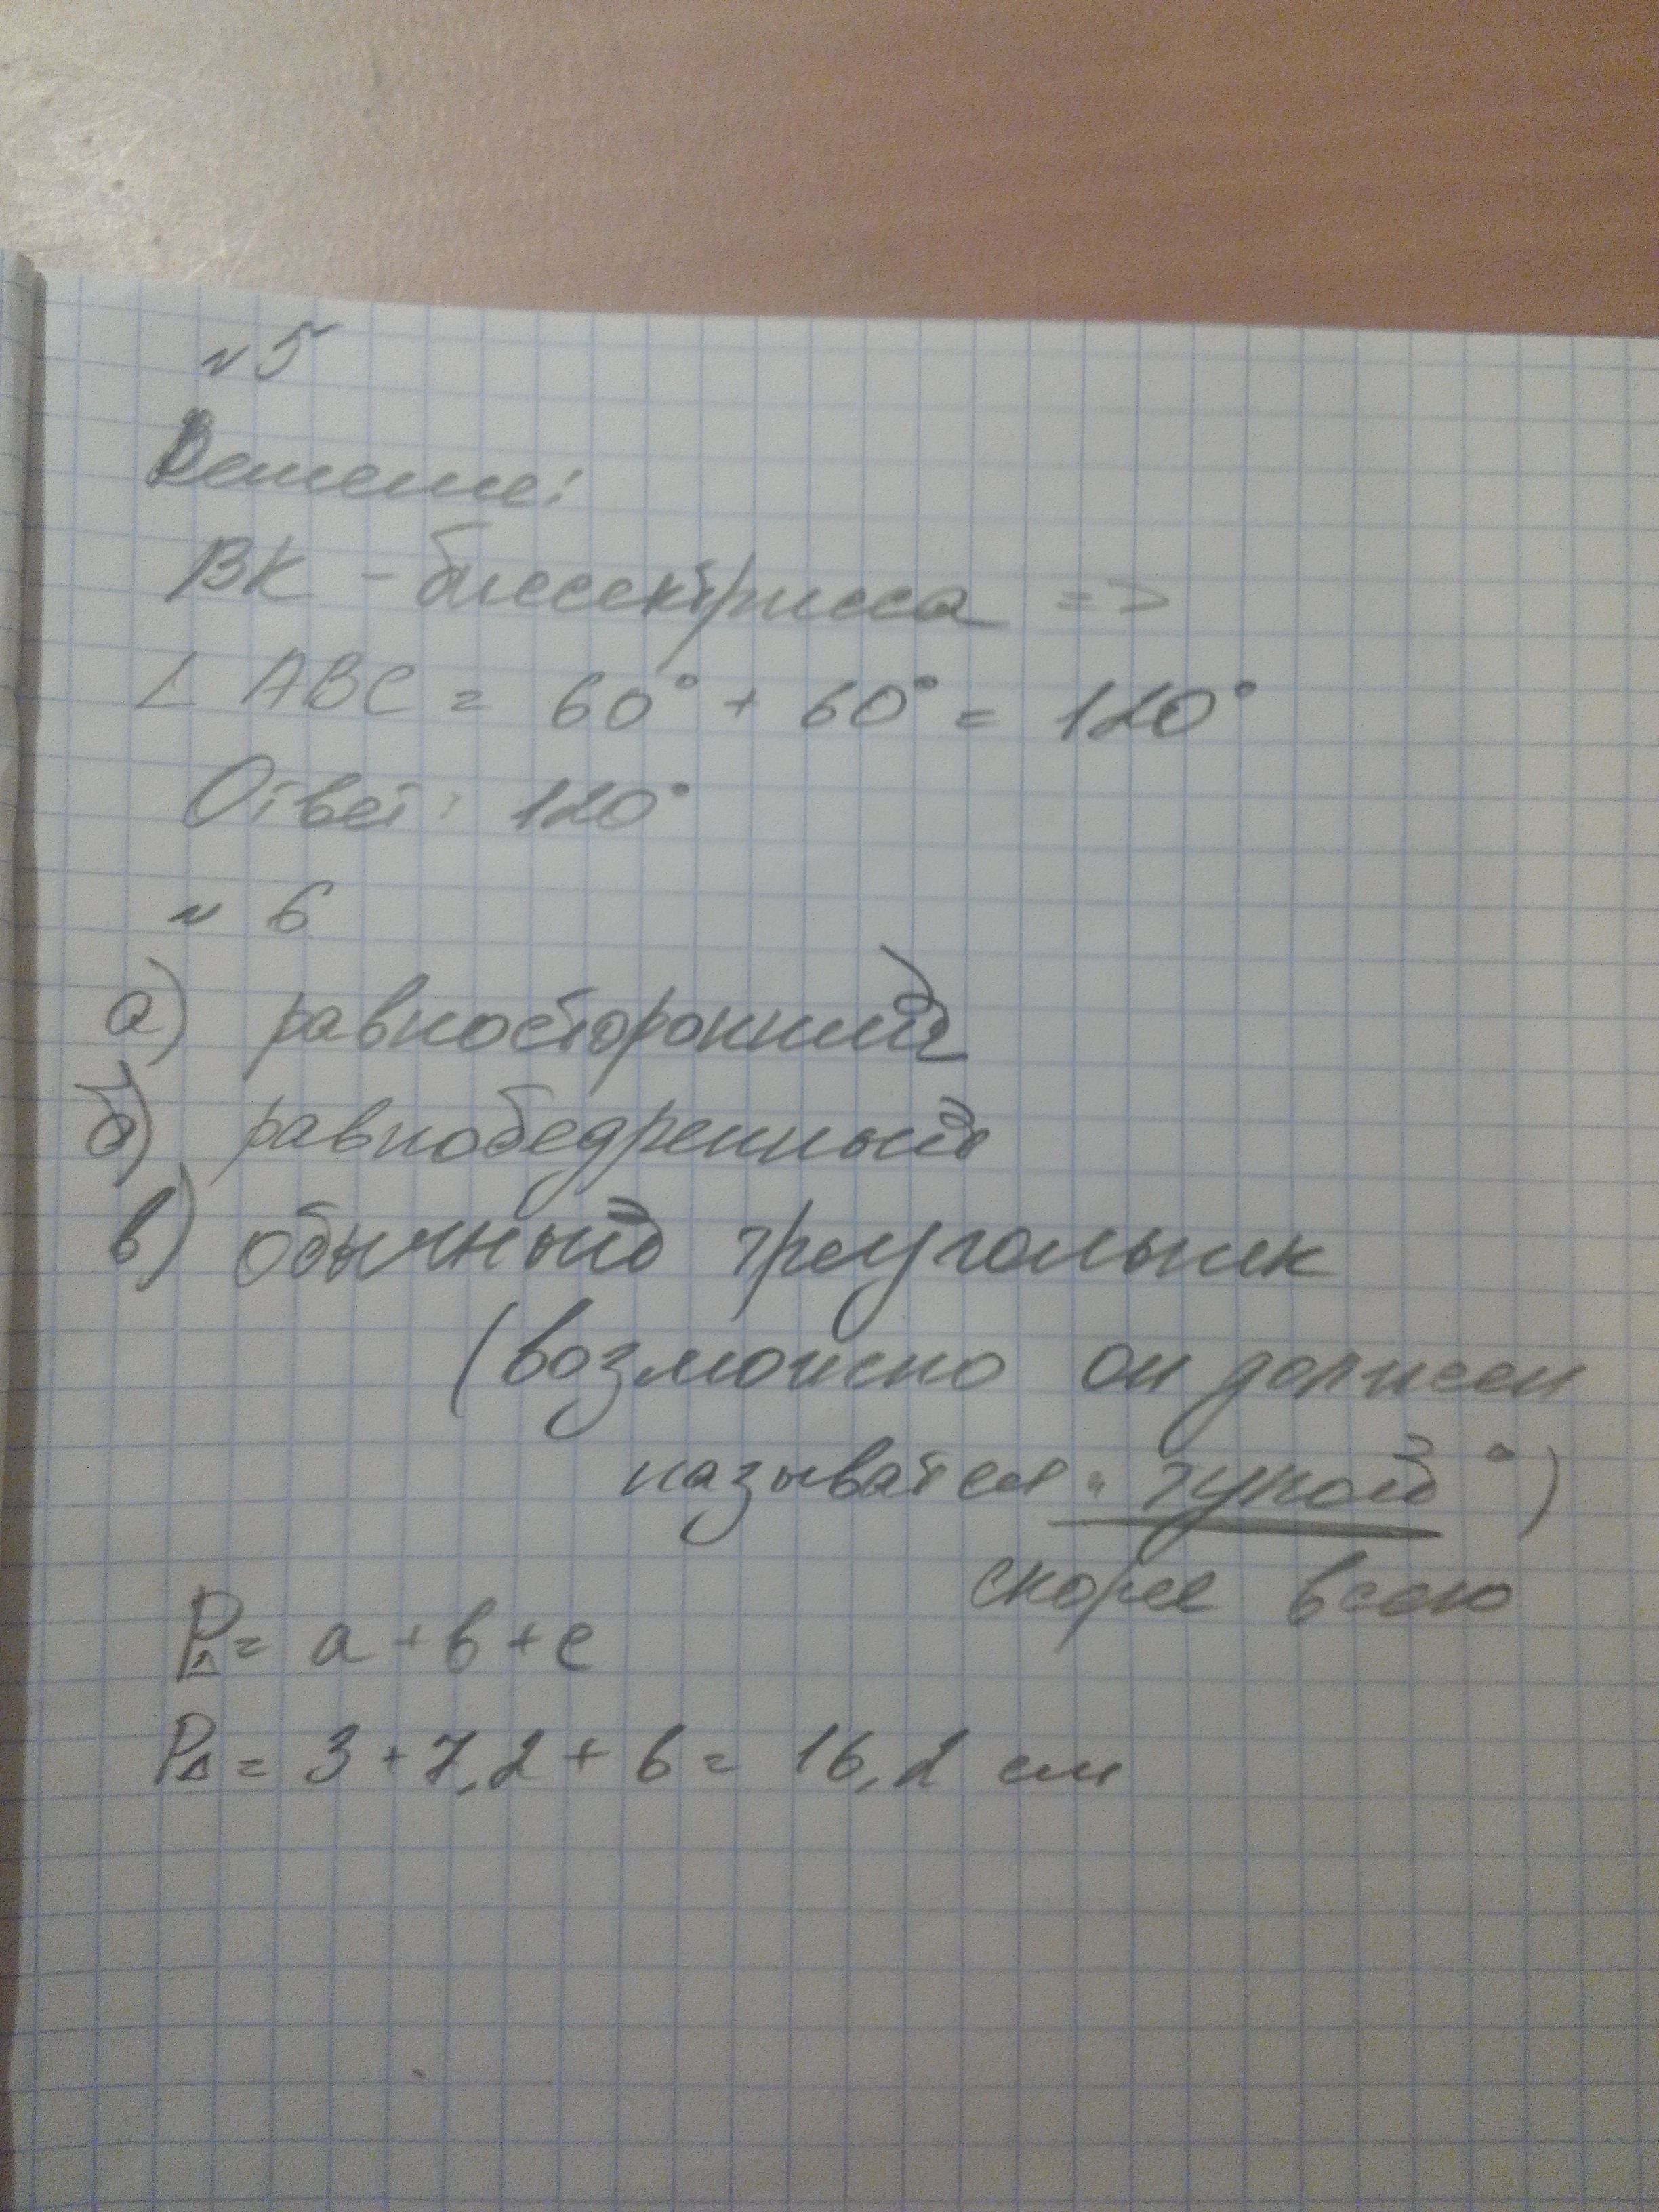 №5
Решение:
BK - биссектрисса =>
∠ ABC = 60° + 60° = 120°
Ответ: 120°
№ 6
а) равносторонний
б) равнобедренный
в) обычный треугольник
(возможно он должен
называтся "тупой")
скорее всего
P△= a + b + c
P△= 3 + 7,2 + 6 = 16,2 см